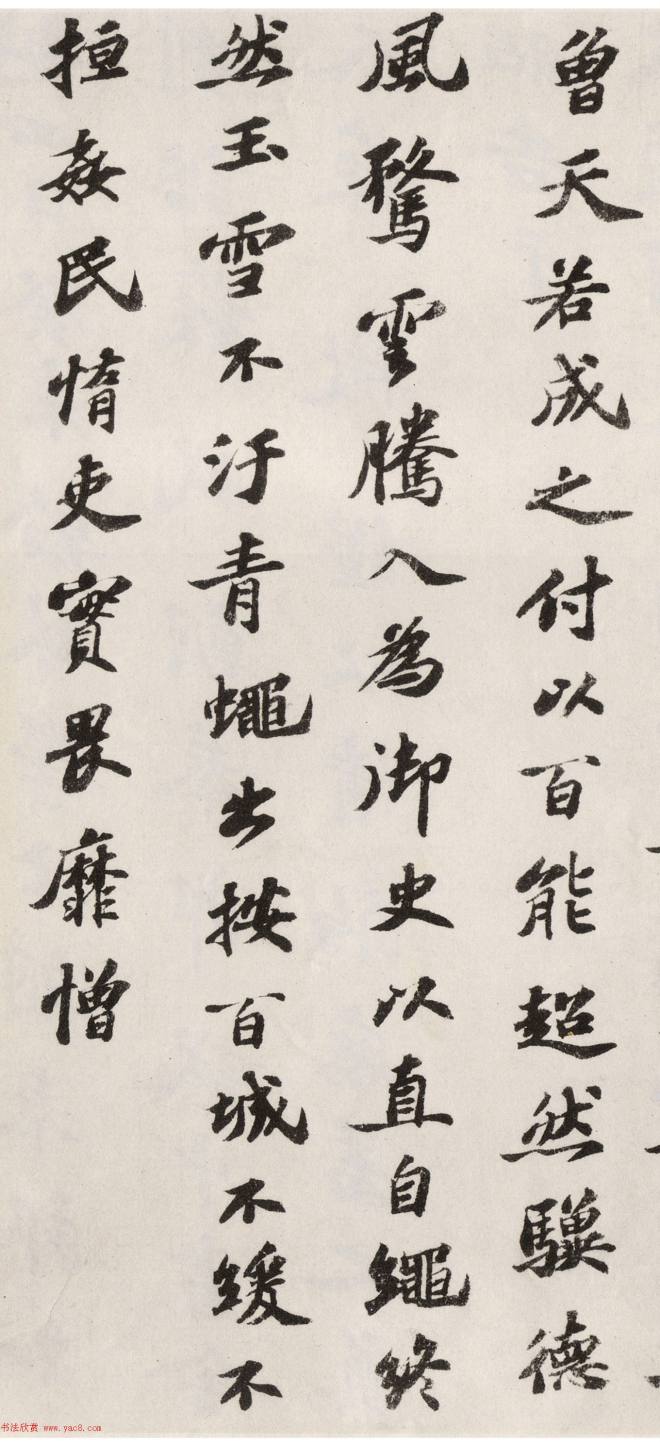 曾天若成之付以百能超然驥德
風鶩雲騰入為御史以直自繩終
然玉雪不汙青蠅出按百城不緩不
搄姦民惰吏實畏靡憎
书法欣赏 www.yac8.com